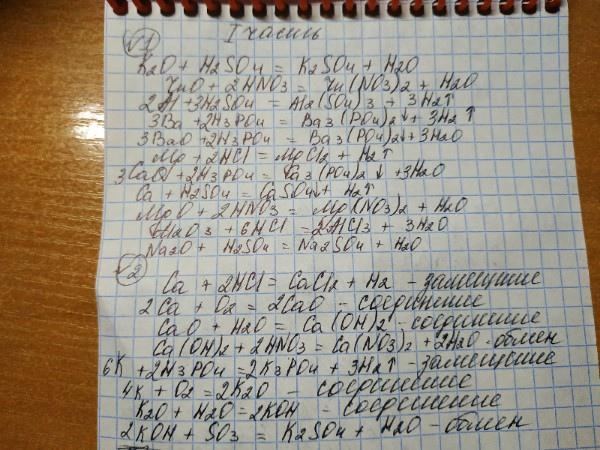 √1 I часть
K2O + H2SO4 = K2SO4 + H2O
ZnO + 2HNO3 = Zn(NO3)2 + H2O
2Al + 3H2SO4 = Al2(SO4)3 + 3H2↑
3Ba + 2H3PO4 = Ba3(PO4)2↓ + 3H2↑
3BaO + 2H3PO4 = Ba3(PO4)2↓ + 3H2O
Mg + 2HCl = MgCl2 + H2↑
3CaO + 2H3PO4 = Ca3(PO4)2↓ + 3H2O
Ca + H2SO4 = CaSO4↓ + H2↑
MgO + 2HNO3 = Mg(NO3)2 + H2O
Al2O3 + 6HCl = 2AlCl3 + 3H2O
Na2O + H2SO4 = Na2SO4 + H2O
√2
Ca + 2HCl = CaCl2 + H2 - замещение
2Ca + O2 = 2CaO - соединение
CaO + H2O = Ca(OH)2 - соединение
Ca(OH)2 + 2HNO3 = Ca(NO3)2 + 2H2O - обмен
6K + 2H3PO4 = 2K3PO4 + 3H2↑ - замещение
4K + O2 = 2K2O - соединение
K2O + H2O = 2KOH - соединение
2KOH + SO3 = K2SO4 + H2O - обмен